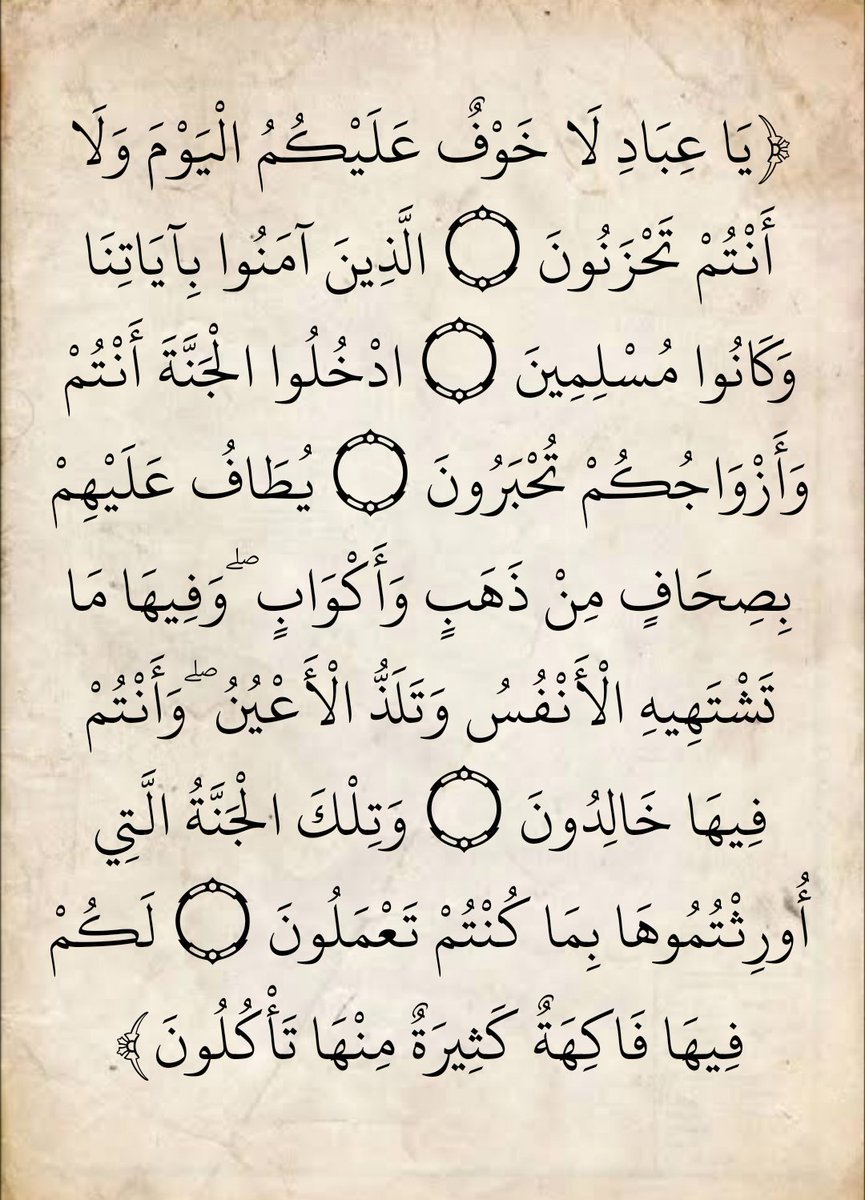 ﴿يَا عِبَادِ لَا خَوْفٌ عَلَيْكُمُ الْيَوْمَ وَلَا
أَنْتُمْ تَحْزَنُونَ ۝ الَّذِينَ آمَنُوا بِآيَاتِنَا
وَكَانُوا مُسْلِمِينَ ۝ ادْخُلُوا الْجَنَّةَ أَنْتُمْ
وَأَزْوَاجُكُمْ تُحْبَرُونَ ۝ يُطَافُ عَلَيْهِمْ
بِصِحَافٍ مِنْ ذَهَبٍ وَأَكْوَابٍ ۖ وَفِيهَا مَا
تَشْتَهِيهِ الْأَنْفُسُ وَتَلَذُّ الْأَعْيُنُ ۖ وَأَنْتُمْ
فِيهَا خَالِدُونَ ۝ وَتِلْكَ الْجَنَّةُ الَّتِي
أُورِثْتُمُوهَا بِمَا كُنْتُمْ تَعْمَلُونَ ۝ لَكُمْ
فِيهَا فَاكِهَةٌ كَثِيرَةٌ مِنْهَا تَأْكُلُونَ﴾